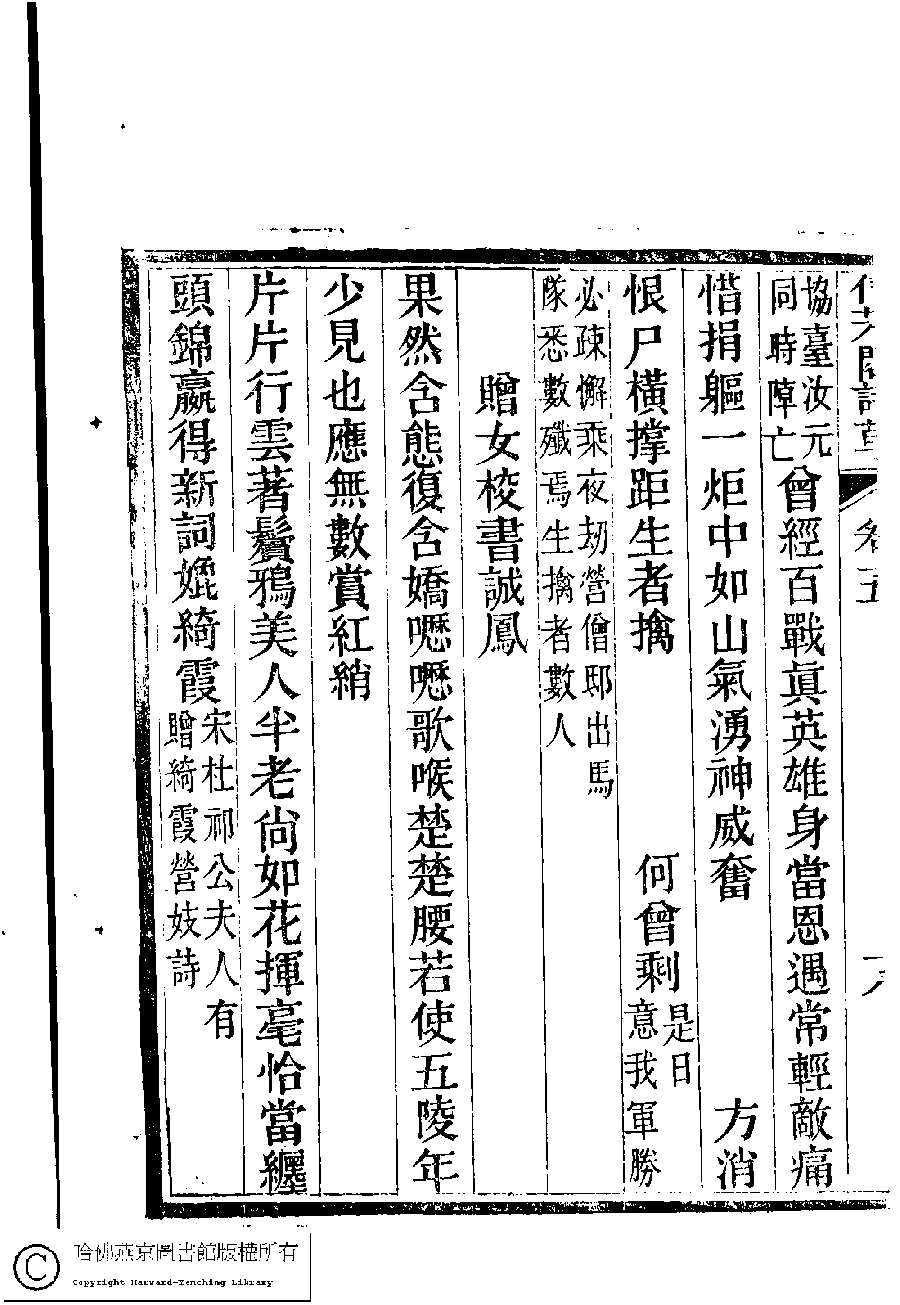 閣詩草 卷五
協臺汝元
同時陣亡
曾經百戰眞英雄身當恩遇常輕敵痛
惜捐軀一炬中如山氣湧神威奮 方消
恨尸橫撐距生者擒 何曾剩
是日
意我軍勝
必疎懈乘夜刼營僧邸出馬
隊悉數殲焉生擒者數人
贈女校書誠鳳
果然含態復含嬌嚦嚦歌喉楚楚腰若使五陵年
少見也應無數賞紅綃
片片行雲著鬢鴉美人半老尚如花揮毫恰當纏
頭錦贏得新詞媲綺霞
宋杜祁公夫人有
贈綺霞營妓詩
哈佛燕京圖書館版權所有
Copyright Harvard-Yenching Library